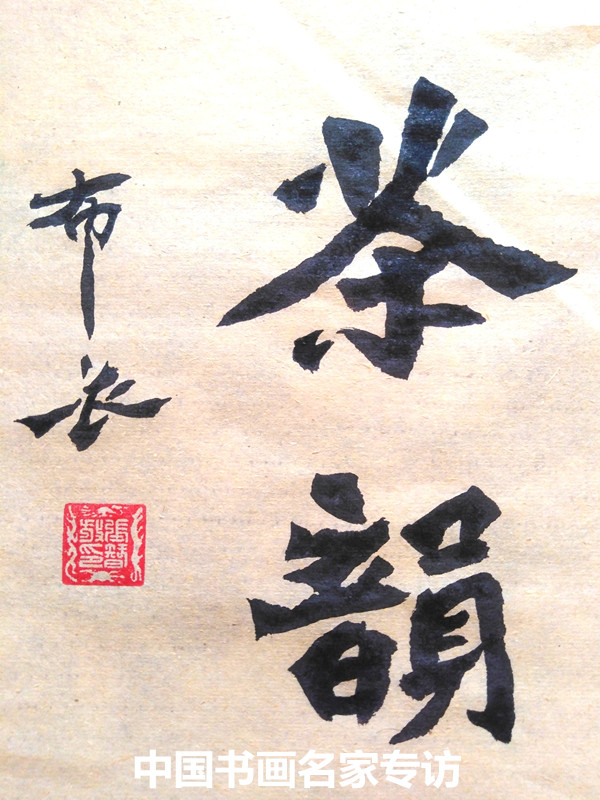 茶韻
布衣
中国书画名家专访